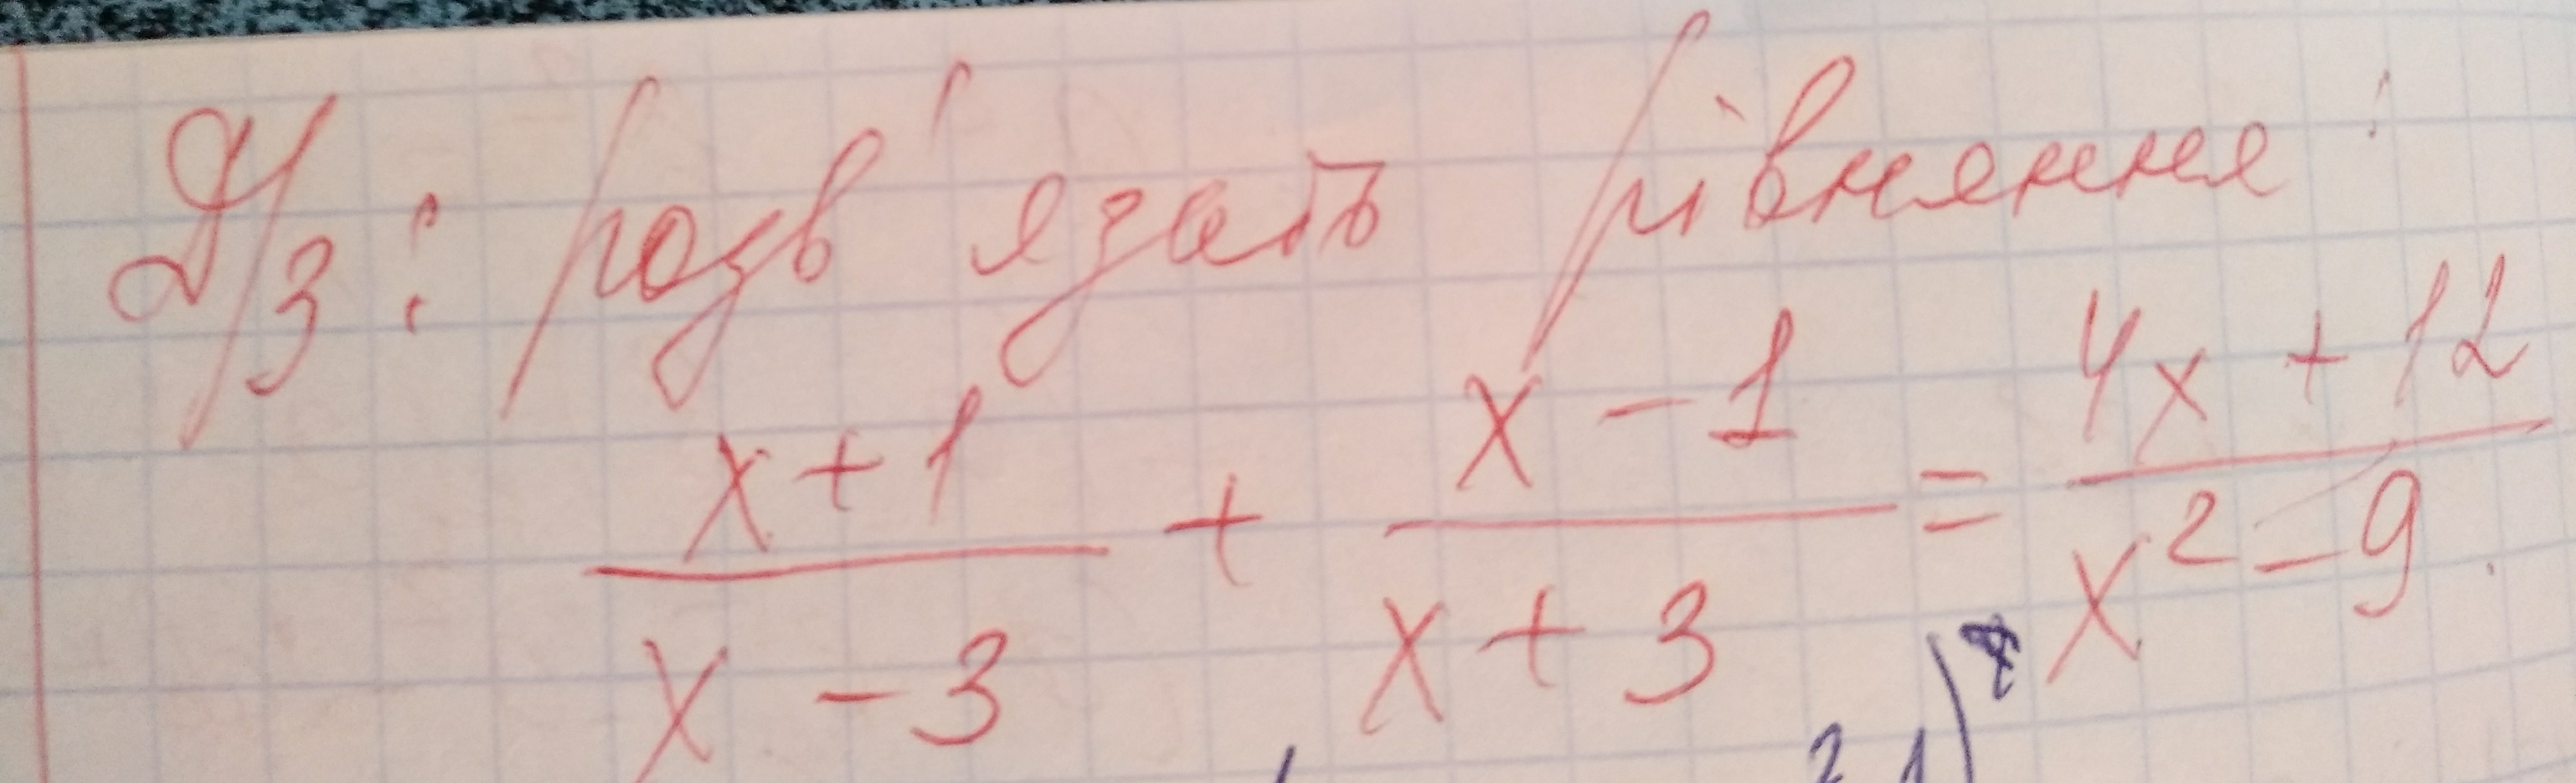 Д/З: розв'язать рівняння:
x+1/x-3 + x-1/x+3 = 4x+12/x²-9.